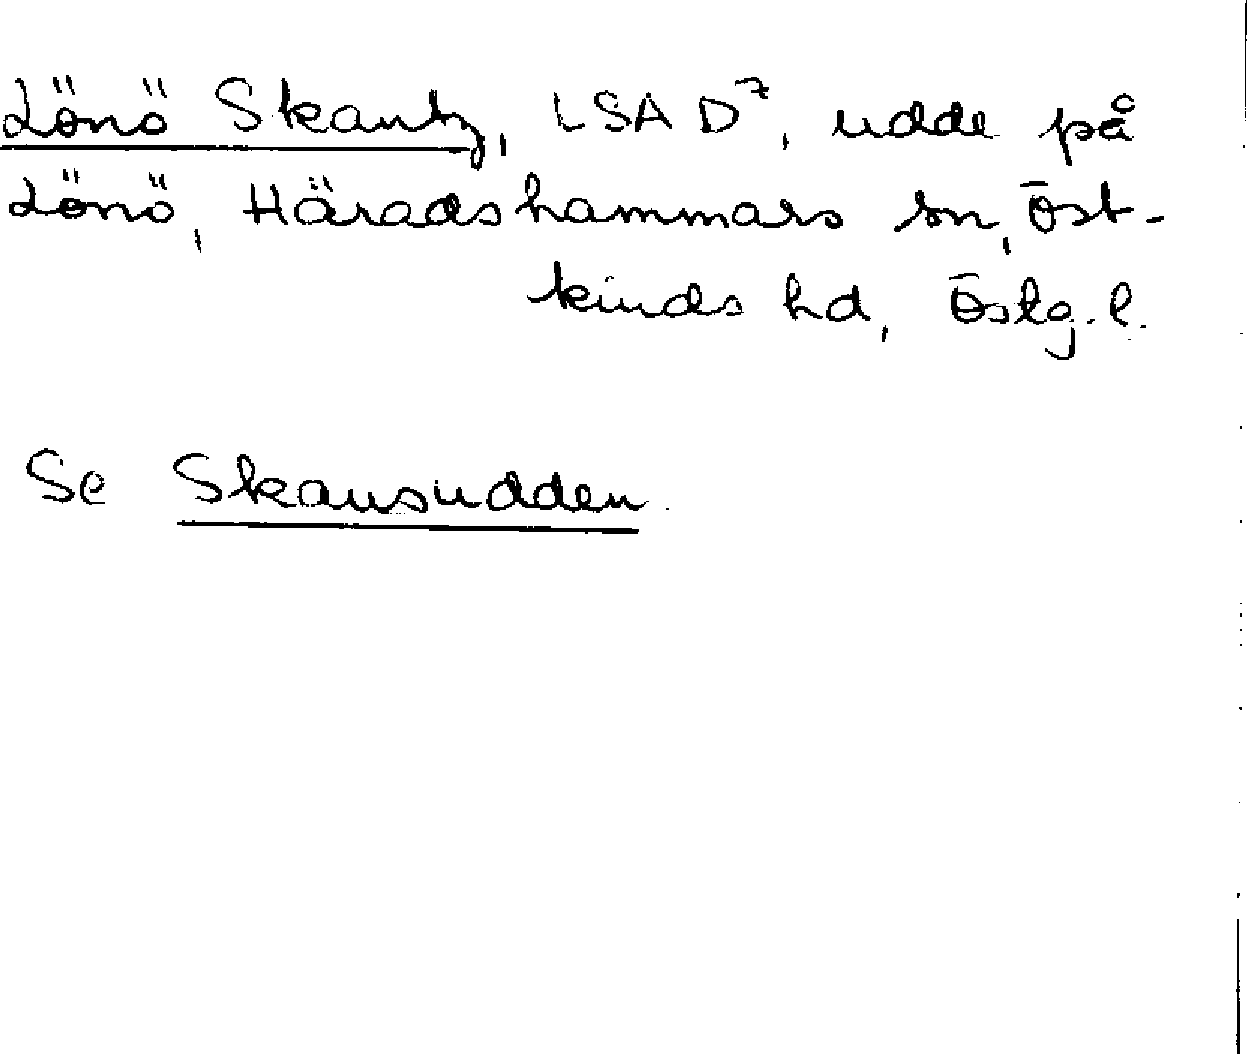 Lönö Skantz, LSA D⁷, udde på
Lönö, Häradshammars sn, Öst-
kinds hd, Östg. l.
Se Skansudden.